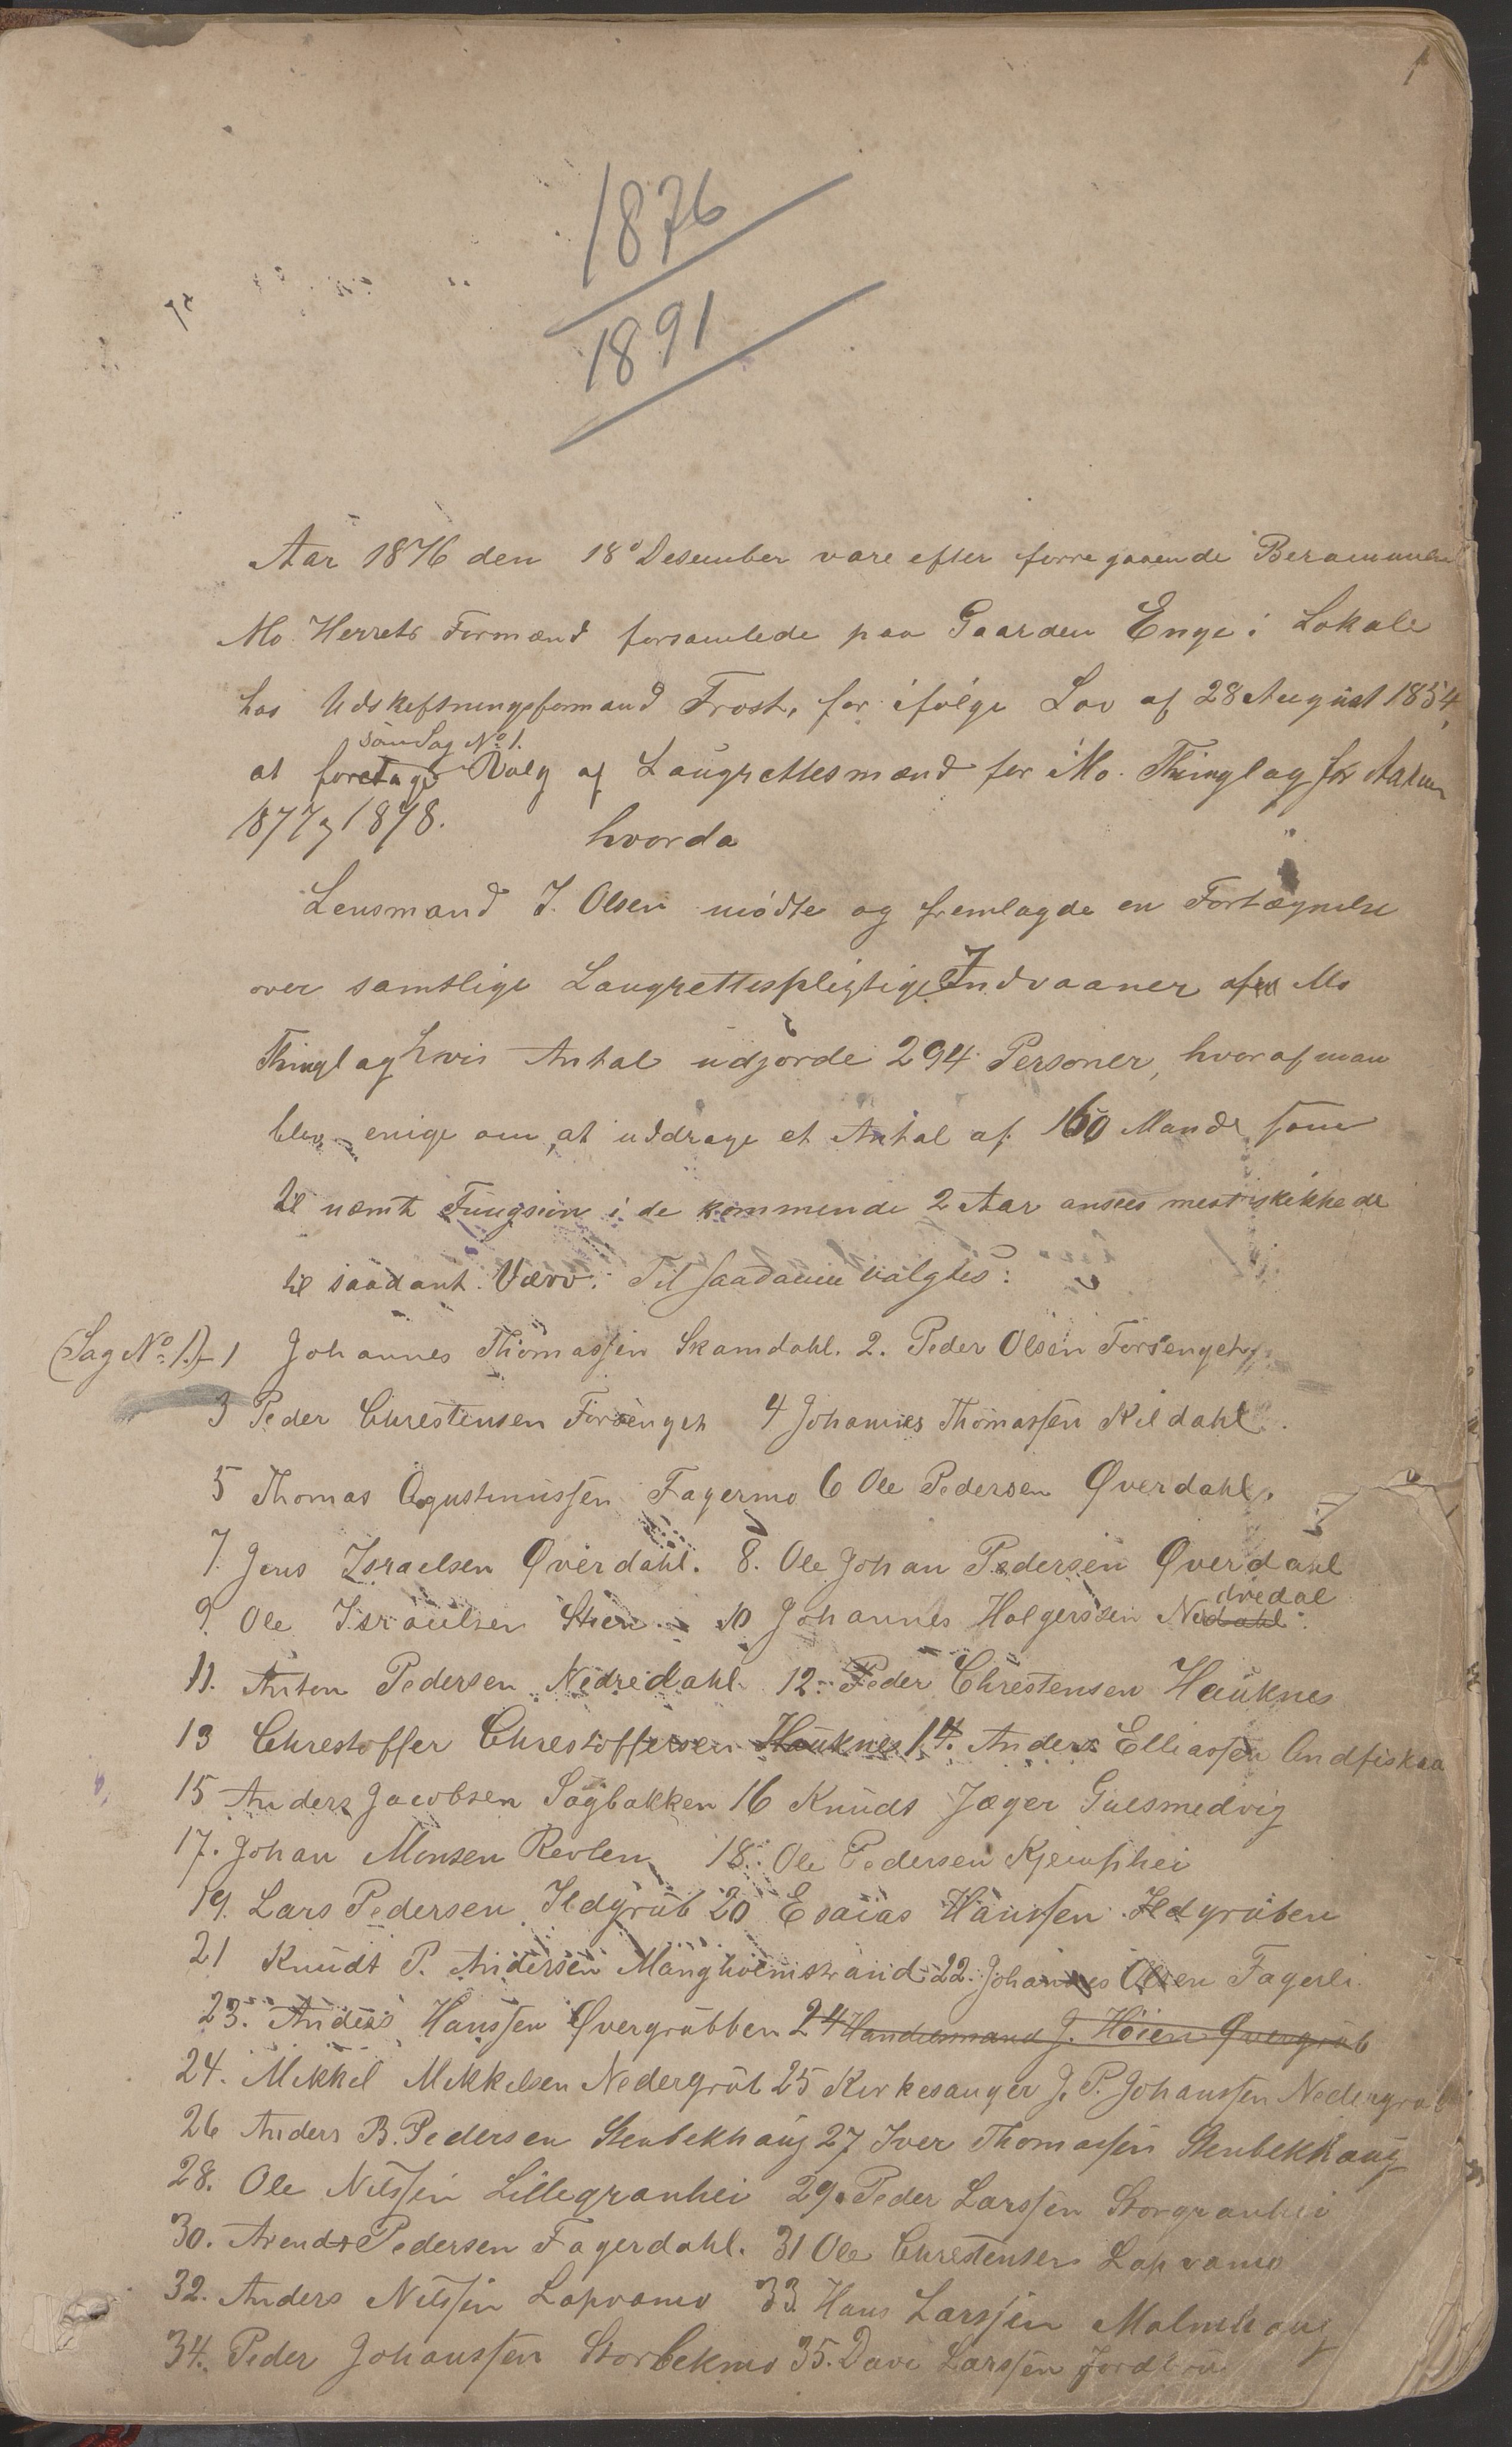 1
1876
1891
Aar 1876 den 18º Desember vare efter forregaaende Berammelse
Mo Herrets Formænd forsamlede paa Gaarden Enge i Lokale
hos Udskeftningsformand Frost, for ifølge Lov af 28 August 1854,
som Sag No 1.
at foretage Valg af Laugrettesmænd for Mo Thinglag for Aarene
1877 og 1878. hvorda
Lensmand J. Olsen mødte og fremlagde en Fortægnelse
over samtlige Laugrettespligtige Indvaaner af Mo
Thinglag hvis Antal udgjorde 294 Personer, hvoraf man
blev enige om at uddrage et Antal af 160 Mand som
til næmte Fungsion i de kommende 2 Aar ansees mest skikkede
til saadant Værv. Til saadanne valgtes:
(Sag No 1.) 1 Johannes Thomassen Skamdahl. 2. Peder Olsen Forsenget
3 Peder Chrestensen Forsenget 4 Johannes Thomassen Kildahl.
5 Thomas Agustinussen Fagermo 6 Ole Pedersen Øverdahl.
7. Jens Israelsen Øverdahl. 8. Ole Johan Pedersen Øverdahl
dredal
9. Ole Israelsen Steen. 10 Johannes Holgerssen Nedahl.
11. Anton Pedersen Nedredahl. 12. Peder Chrestensen Hauknes
13 Chrestoffer Chrestoffersen Hauknes 14. Anders Elliassen Andfiskaa
15 Anders Jacobsen Sagbakken 16 Knuds Jæger Gulsmedvig
17. Johan Monsen Revlen 18. Ole Pedersen Kjemphei
19. Lars Pedersen Ildgrub 20 Esaias Hanssen Ildgruben
21 Knudt P. Andersen Mangholmstrand 22. Johannes Olsen Fagerli
23. Anders Hanssen Øvergrubben 24 Handelsmand J. Høien Øvergrub
24. Mikkel Mikkelsen Nedergrub 25 Kirkesanger J. P. Johanssen Nedergrub
26 Anders B. Pedersen Stenbekhaug 27 Iver Thomassen Stenbekhaug
28. Ole Nilssen Lillegranhei 29. Peder Larssen Storgranhei
30. Arendt Pedersen Fagerdahl. 31 Ole Chrestensen Lapvamo
32. Anders Nilssen Lapvamo 33. Hans Larssen Malmhaug
34. Peder Johanssen Storbekmo 35. Dave Larssen